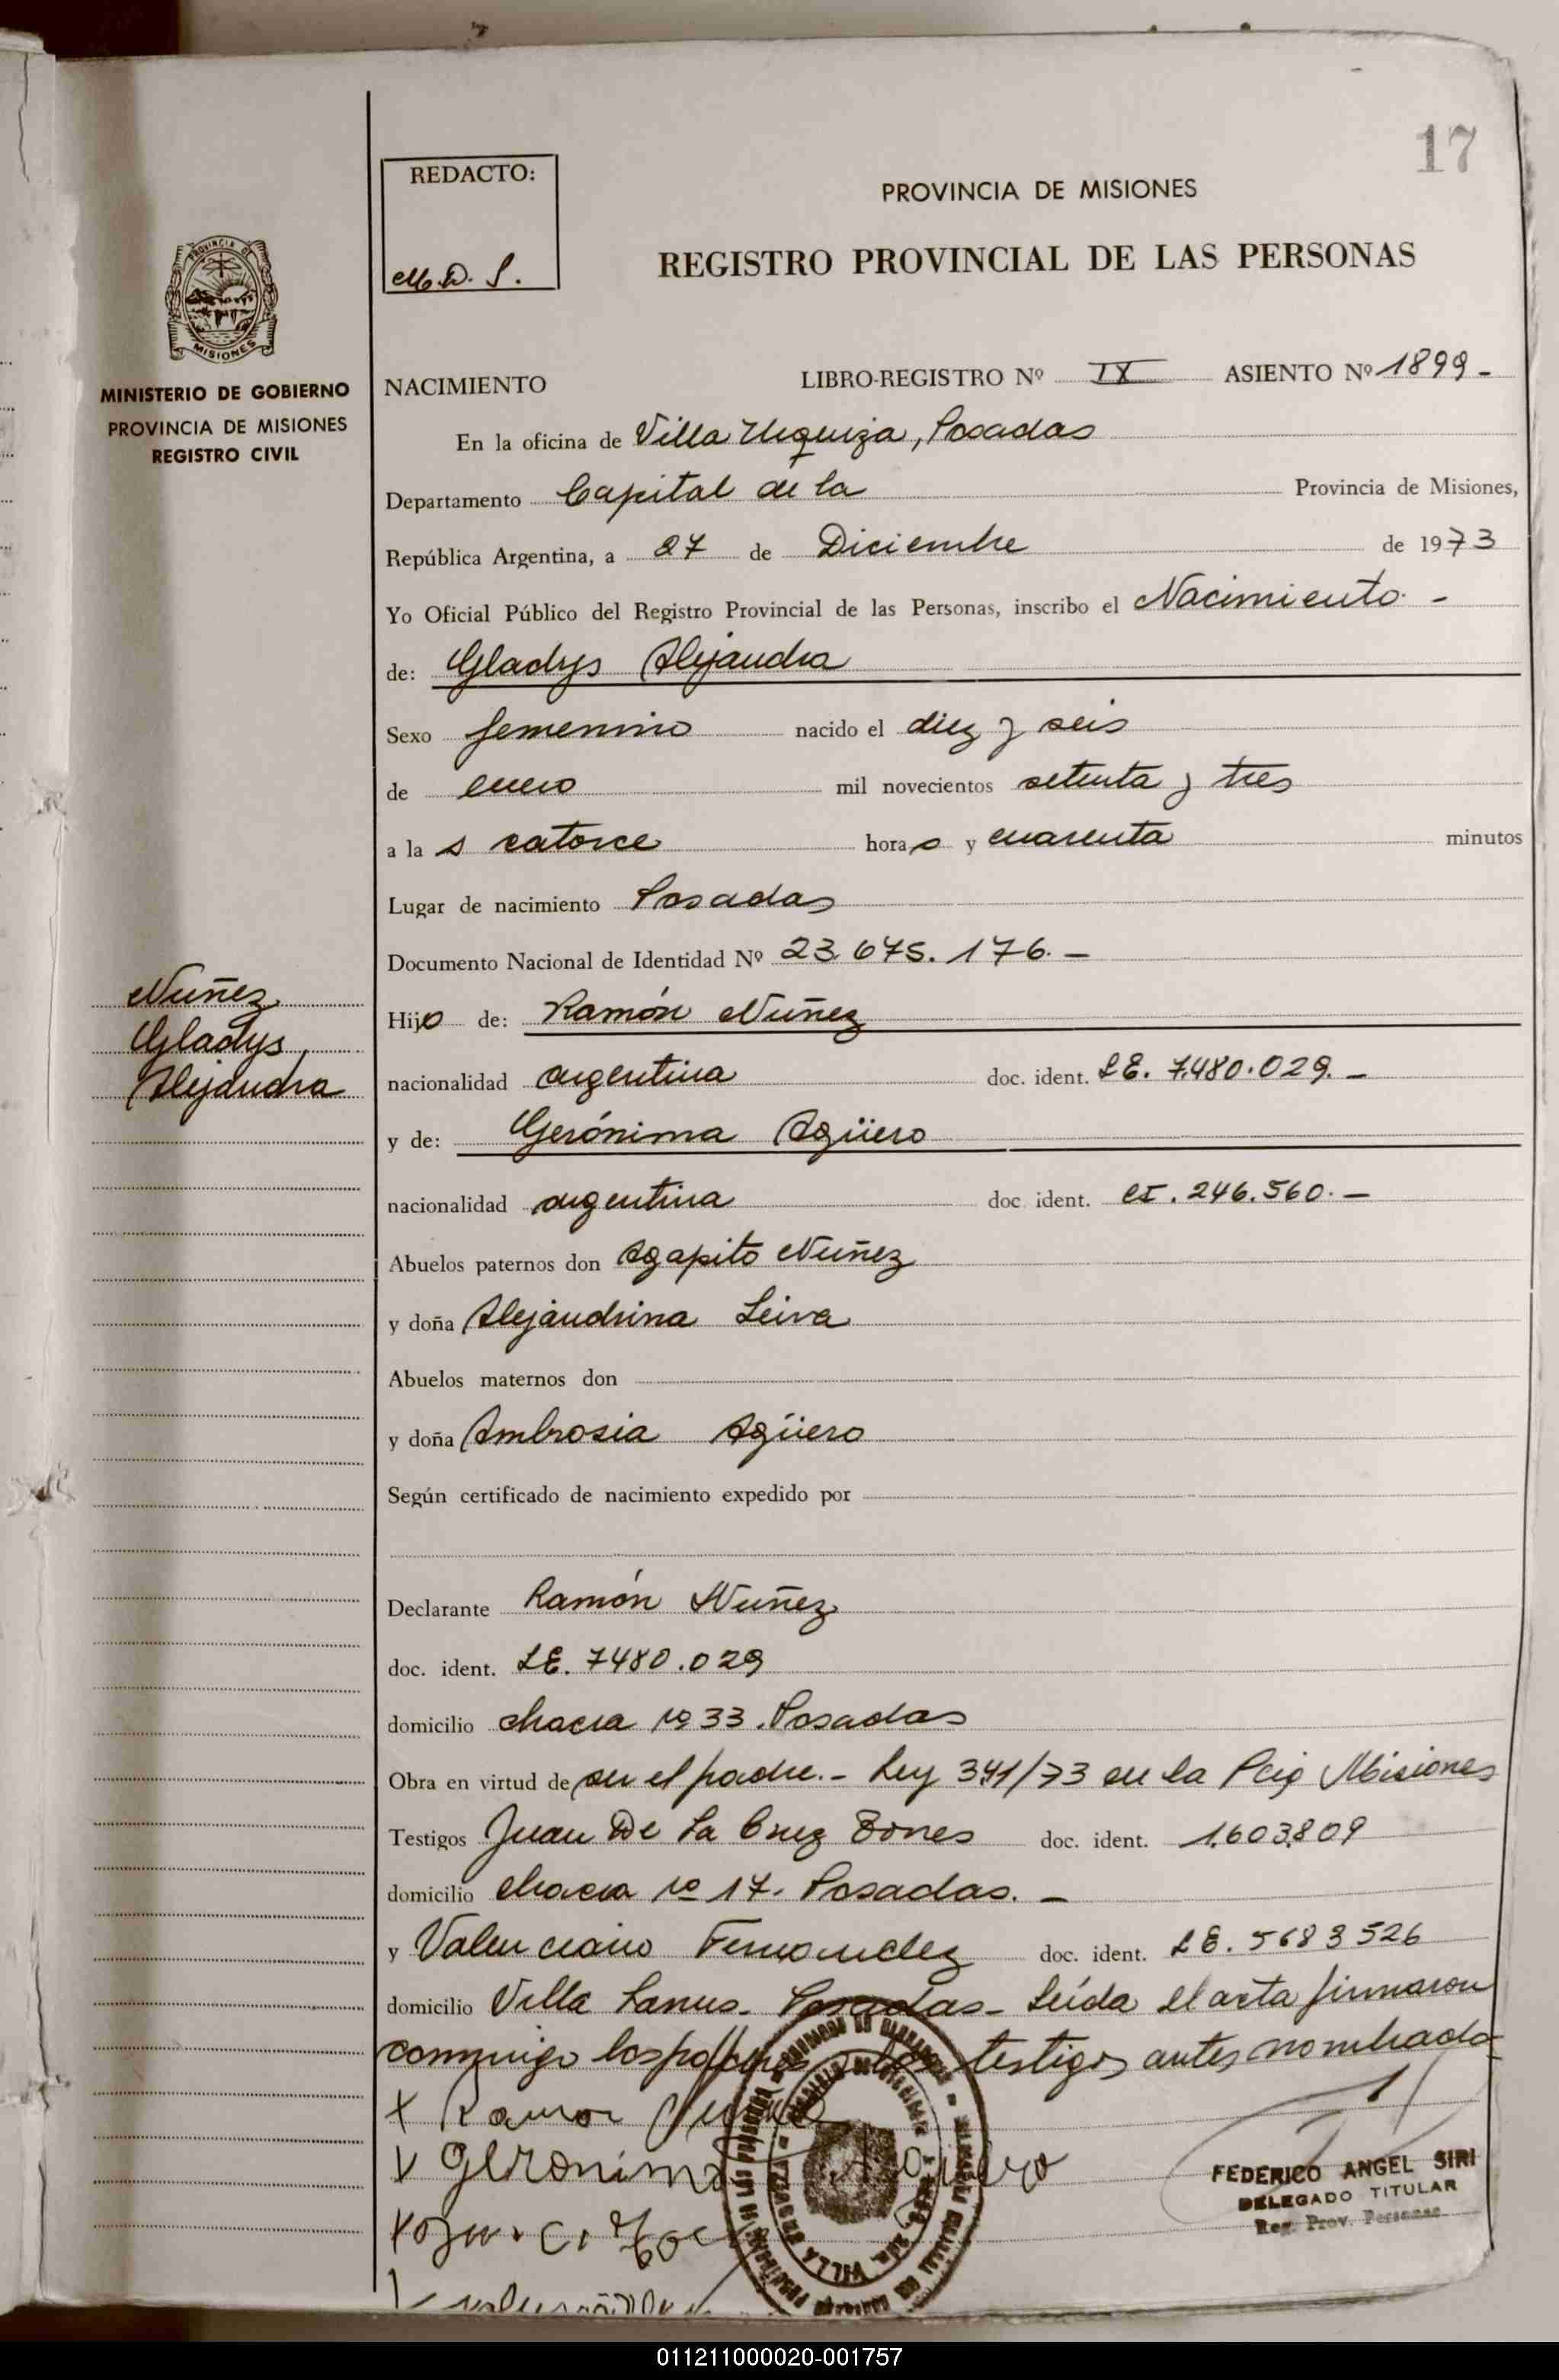 17
REDACTO:
M.D.S.
PROVINCIA DE MISIONES
REGISTRO PROVINCIAL DE LAS PERSONAS
PROVINCIA D
MISIONES
MINISTERIO DE GOBIERNO
PROVINCIA DE MISIONES
REGISTRO CIVIL
NACIMIENTO LIBRO-REGISTRO Nº IX ASIENTO Nº 1899-
En la oficina de Villa Urquiza, Posadas
Departamento Capital de la Provincia de Misiones,
República Argentina, a 27 de Diciembre de 1973
Yo Oficial Público del Registro Provincial de las Personas, inscribo el Nacimiento.-
de: Gladys Alejandra
Sexo femenino nacido el diez y seis
de enero mil novecientos setenta y tres
a la s catorce hora s y cuarenta minutos
Lugar de nacimiento Posadas
Documento Nacional de Identidad Nº 23.675.176.-
Nuñez
Gladys
Alejandra
Hijo de: Ramón Nuñez
nacionalidad argentina doc. ident. LE. 7.480.029.-
y de: Gerónima Agüero
nacionalidad argentina doc. ident. CI. 246.560.-
Abuelos paternos don Agapito Nuñez
y doña Alejandrina Leiva
Abuelos maternos don
y doña Ambrosia Agüero
Según certificado de nacimiento expedido por
Declarante Ramón Nuñez
doc. ident. LE. 7480.029
domicilio chacra nº 33. Posadas
Obra en virtud de ser el padre.- Ley 341/73 en la Pcia Misiones
Testigos Juan De La Cruz doc. ident. 1.603.809
domicilio chacra nº 17. Posadas.-
y Valenciano Fernandez doc. ident. LE. 5683526
domicilio Villa Lanus- Posadas- Leída el acta firmaron
conmigo los padres testigos antes nombrados
x Ramon
Geronima Aguero
FEDERICO ANGEL SIRI
DELEGADO TITULAR
Reg. Prov. Personas
011211000020-001757